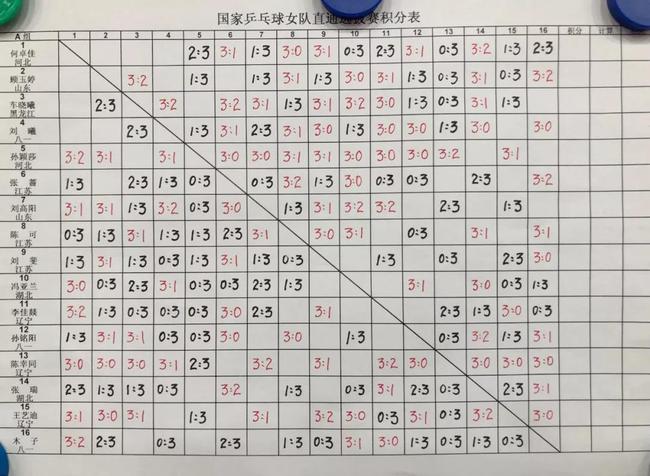 国家乒乓球女队直通选拔赛积分表
A 组 1 2 3 4 5 6 7 8 9 10 11 12 13 14 15 16 积分 计算
1
何卓佳 2:3 3:1 1:3 3:0 3:1 0:3 2:3 3:1 0:3 3:2 1:3 2:3
河北
2
顾玉婷 3:2 1:3 3:1 3:1 1:3 3:0 3:1 1:3 0:3 3:1 0:3 3:2
山东
3
车晓曦 2:3 3:2 3:2 3:1 1:3 3:1 3:2 3:0 1:3 0:3 3:1 1:3
黑龙江
4
刘 曦 2:3 1:3 3:1 2:3 3:1 3:0 1:3 3:0 3:0 1:3 3:0 3:0
八一
5
孙颖莎 3:2 3:1 3:1 3:0 3:0 3:1 3:1 3:0 3:0 3:0 3:2 3:1
河北
6
张 蔷 1:3 2:3 1:3 0:3 0:3 3:2 1:3 3:0 0:3 0:3 2:3 3:2
江苏
7
刘高阳 3:1 3:1 1:3 3:2 0:3 3:0 1:3 3:1 3:2 3:2 2:3 1:3
山东
8
陈 可 0:3 1:3 3:1 1:3 1:3 2:3 3:1 3:0 3:1 0:3 3:1 3:1
江苏
9
刘 斐 1:3 3:1 1:3 0:3 1:3 3:1 1:3 0:3 1:3 0:3 2:3 3:0
江苏
10
冯亚兰 3:0 0:3 2:3 3:1 0:3 0:3 2:3 1:3 3:1 3:0 0:3 1:3
湖北
11
李佳燚 3:2 1:3 0:3 0:3 0:3 3:0 2:3 3:1 2:3 1:3 3:0 0:3
辽宁
12
孙铭阳 1:3 3:1 3:1 0:3 0:3 3:0 3:0 1:3 0:3 3:2 1:3 3:1
八一
13
陈幸同 3:0 3:0 3:0 3:1 2:3 3:2 3:1 3:2 3:0 3:0 3:0 3:0
辽宁
14
张 瑞 2:3 1:3 1:3 0:3 3:2 1:3 0:3 3:1 2:3 0:3 2:3 3:1
湖北
15
王艺迪 3:1 3:0 3:1 1:3 3:1 3:2 3:0 0:3 3:1 0:3 3:2 3:0
辽宁
16
木 子 3:2 2:3 0:3 2:3 1:3 0:3 3:1 3:0 1:3 0:3 1:3 0:3
八一